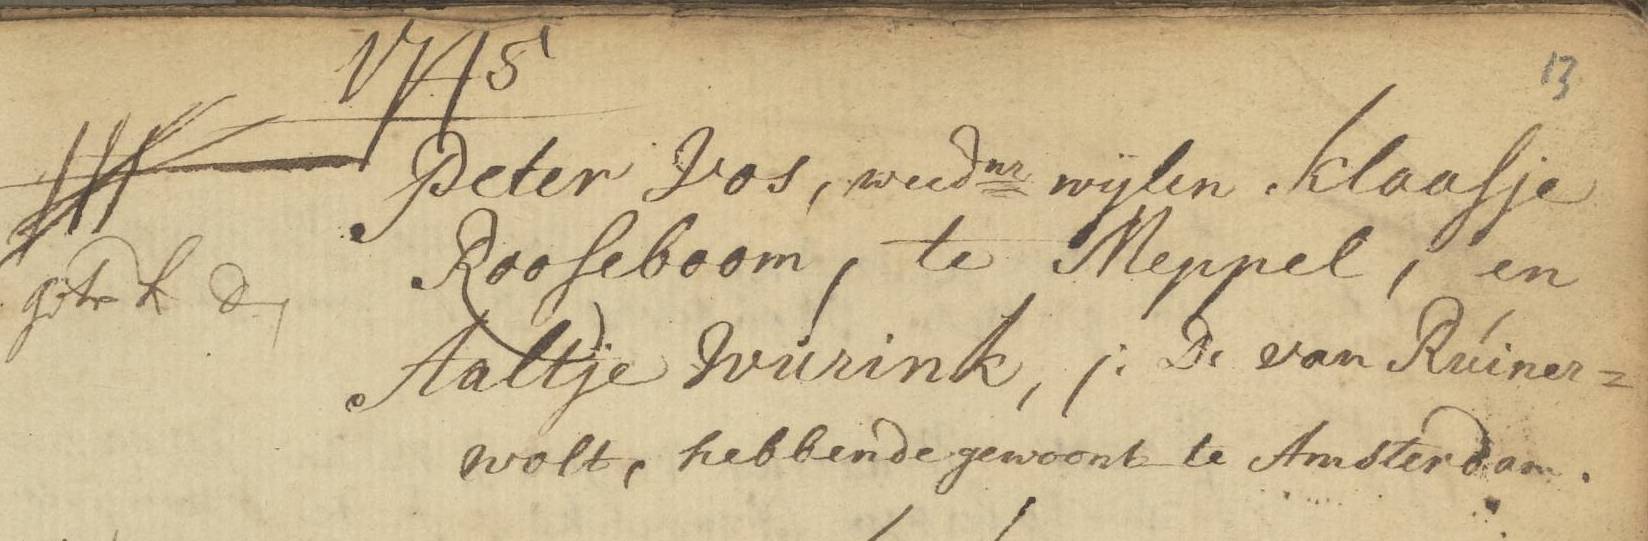 1745
13
Peter Vos, weednr wijlen Klaasje
Rooseboom, te Meppel, en
Aaltje Wurink, j: D: van Rúiner=
wolt, hebbende gewoont te Amsterdam.